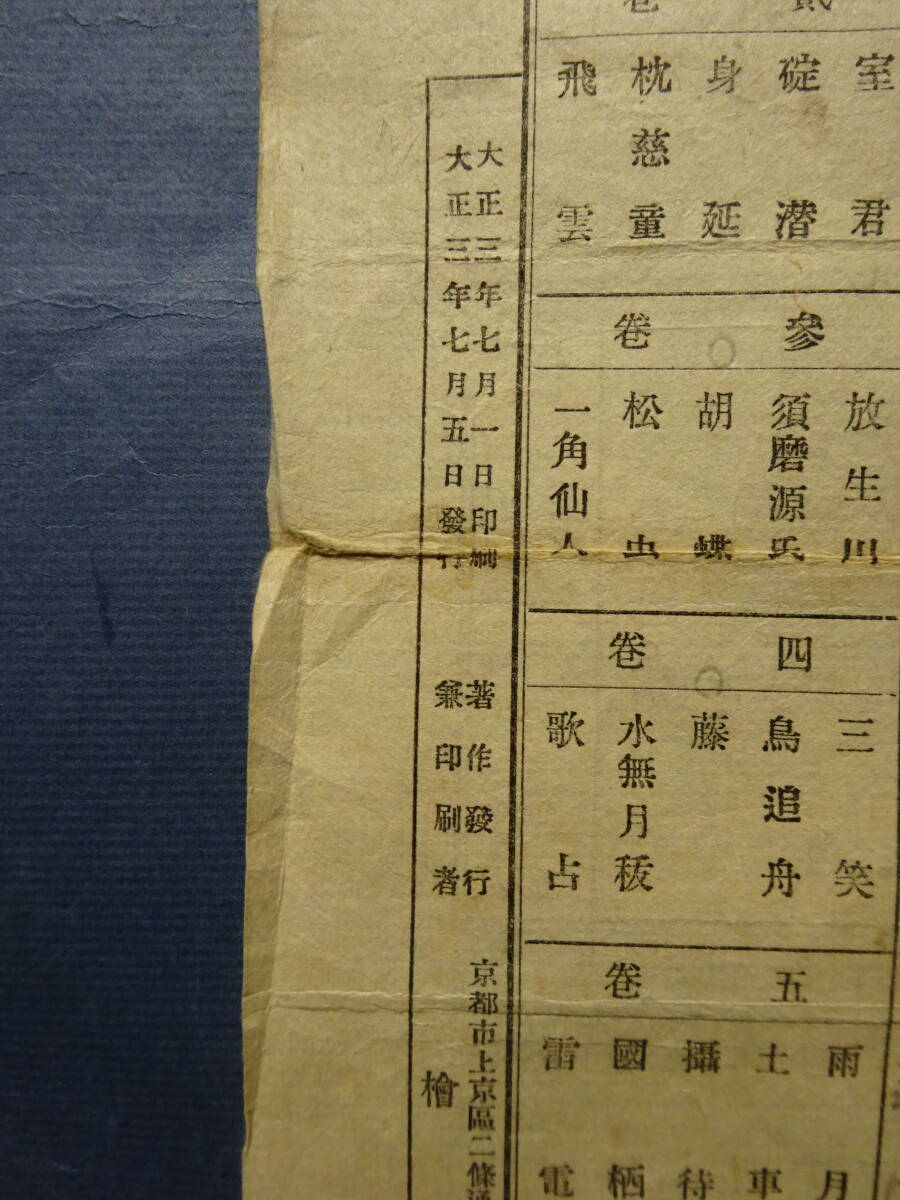 貳卷
室君
碇潜
身延
枕慈童
飛雲
參卷
放生川
須磨源氏
胡蝶
松虫
一角仙人
四卷
三笑
鳥追舟
藤
水無月秡
歌占
五卷
雨月
土車
攝待
國栖
雷電
大正三年七月一日印刷
大正三年七月五日發行
著作發行
兼印刷者
京都市上京區二條通
檜